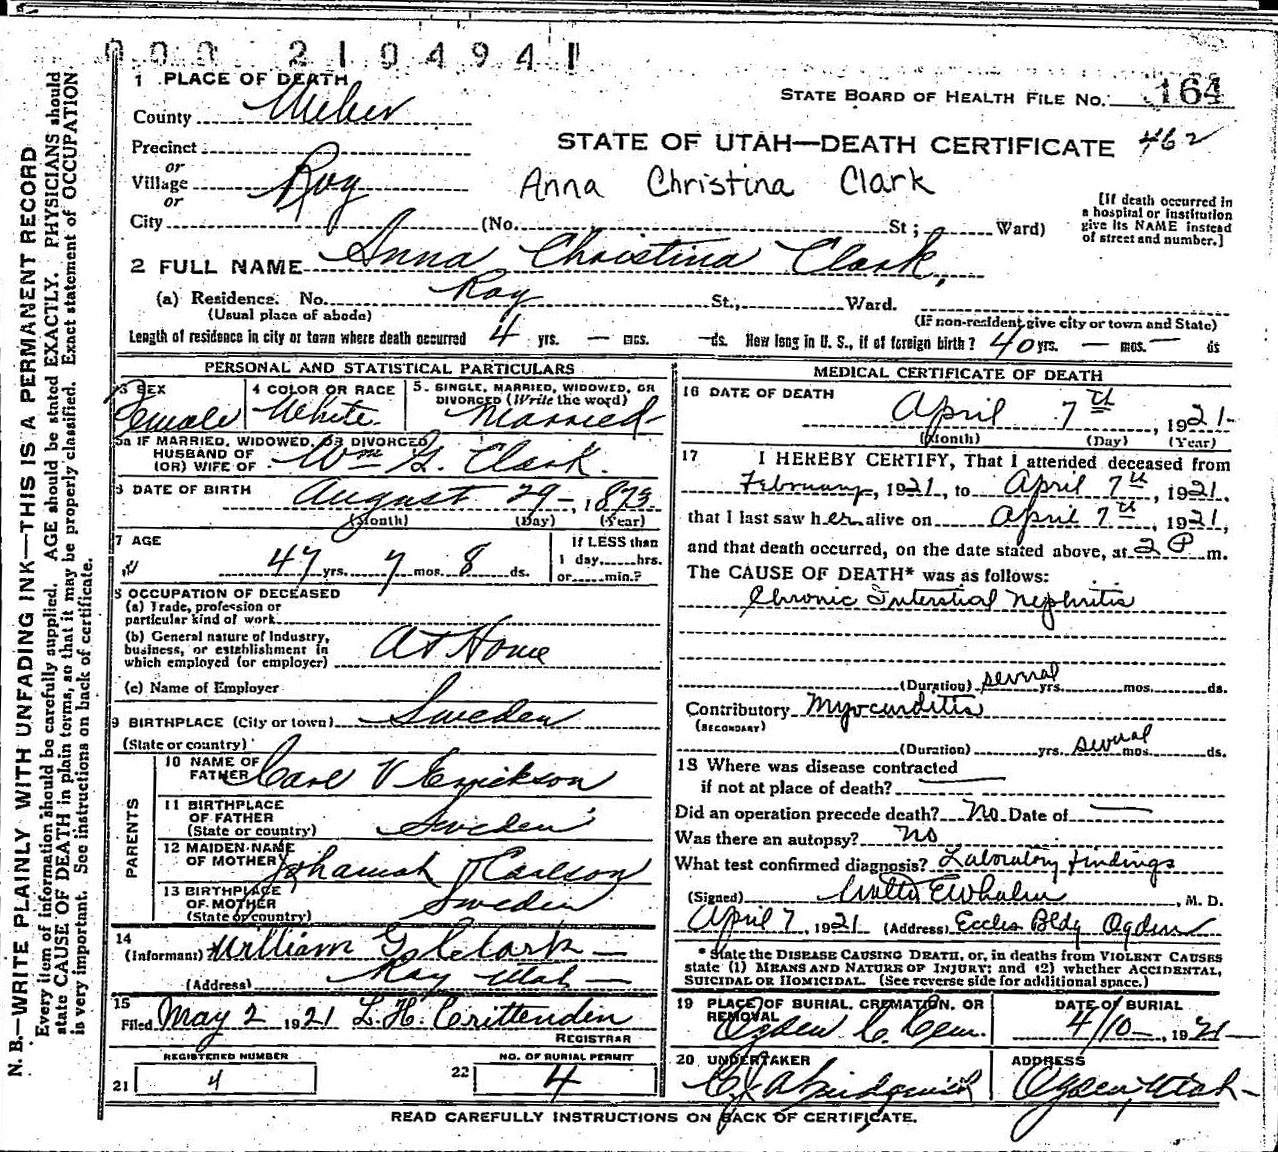 000 2104941
1 PLACE OF DEATH
STATE BOARD OF HEALTH FILE NO. 164
County Weber
STATE OF UTAH—DEATH CERTIFICATE 462
Precinct
or
Village Roy
Anna Christina Clark
or
[If death occurred in
a hospital or institution
give its NAME instead
of street and number.]
City (No. St; Ward)
2 FULL NAME Anna Christina Clark,
(a) Residence. No. Roy St., Ward.
(Usual place of abode) (If non-resident give city or town and State)
Length of residence in city or town where death occurred 4 yrs. — mos. —ds. How long in U. S., if of foreign birth? 40 yrs. — mos. — ds
PERSONAL AND STATISTICAL PARTICULARS
3 SEX
Female
4 COLOR OR RACE
White
5. SINGLE, MARRIED, WIDOWED, OR
DIVORCED (Write the word)
Married
5a IF MARRIED, WIDOWED, OR DIVORCED
HUSBAND OF
(OR) WIFE OF Wm G. Clark.
6 DATE OF BIRTH August 29 –, 1873
(Month) (Day) (Year)
7 AGE
47 yrs. 7 mos. 8 ds.
If LESS than
1 day, hrs.
or min.?
8 OCCUPATION OF DECEASED
(a) Trade, profession or
particular kind of work
(b) General nature of Industry,
business, or establishment in
which employed (or employer) At Home
(c) Name of Employer
9 BIRTHPLACE (City or town) Sweden
(State or country)
PARENTS
10 NAME OF
FATHER Carl V Erickson
11 BIRTHPLACE
OF FATHER
(State or country) Sweden
12 MAIDEN NAME
OF MOTHER Johannah Carlson
13 BIRTHPLACE
OF MOTHER
(State or country) Sweden
14
(Informant) William G Clark —
(Address) Roy Utah —
15
Filed May 2 1921 L. H. Crittenden
REGISTRAR
REGISTERED NUMBER
21 4
NO. OF BURIAL PERMIT
22 4
MEDICAL CERTIFICATE OF DEATH
16 DATE OF DEATH
April 7th, 1921.
(Month) (Day) (Year)
17 I HEREBY CERTIFY, That I attended deceased from
February, 1921, to April 7th, 1921,
that I last saw her alive on April 7th, 1921,
and that death occurred, on the date stated above, at 2 P m.
The CAUSE OF DEATH* was as follows:
Chronic Interstial Nephritis
(Duration) several yrs. mos. ds.
Contributory Myocarditis
(SECONDARY)
(Duration) yrs. several mos. ds.
18 Where was disease contracted
if not at place of death?
Did an operation precede death? No. Date of —
Was there an autopsy? No
What test confirmed diagnosis? Laboratory findings
(Signed) Walter E Whalen, M. D.
April 7, 1921 (Address) Eccles Bldg Ogden
* State the DISEASE CAUSING DEATH, or, in deaths from VIOLENT CAUSES
state (1) MEANS AND NATURE OF INJURY; and (2) whether ACCIDENTAL,
SUICIDAL OR HOMICIDAL. (See reverse side for additional space.)
19 PLACE OF BURIAL, CREMATION, OR
REMOVAL
Ogden C. Cem.
DATE OF BURIAL
4/10–, 1921 —
20 UNDERTAKER
ADDRESS
Ogden, Utah –
READ CAREFULLY INSTRUCTIONS ON BACK OF CERTIFICATE.
N. B.—WRITE PLAINLY WITH UNFADING INK—THIS IS A PERMANENT RECORD
Every item of information should be carefully supplied. AGE should be stated EXACTLY. PHYSICIANS should
state CAUSE OF DEATH in plain terms, so that it may be properly classified. Exact statement of OCCUPATION
is very important. See instructions on back of certificate.